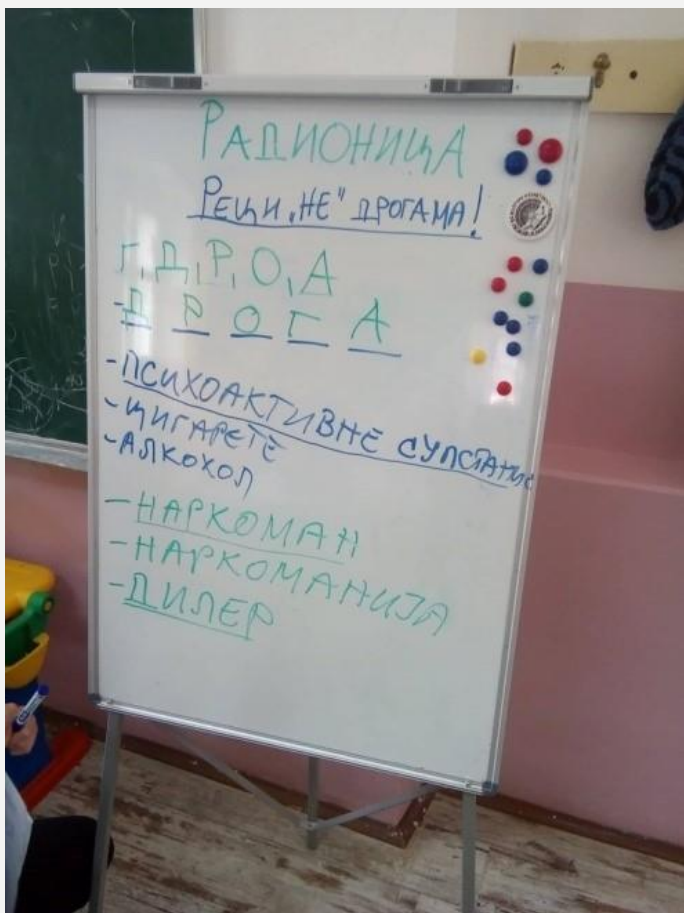 РАДИОНИЦА
РЕЦИ „НЕ" ДРОГАМА!
Г, Д, Р, О, А
- Д Р О Г А
- ПСИХОАКТИВНЕ СУПСТАНЦЕ
- ЦИГАРЕТЕ
- АЛКОХОЛ
- НАРКОМАН
- НАРКОМАНИЈА
- ДИЛЕР